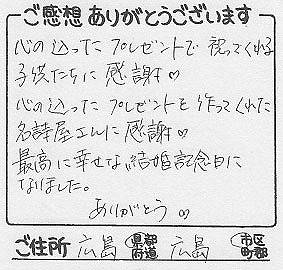 ご感想ありがとうございます
心の込ったプレゼントで祝ってくれる
子供たちに感謝♡
心の込ったプレゼントを作ってくれた
名詩屋さんに感謝♡
最高に幸せな結婚記念日に
なりました。
ありがとう ♡
ご住所 広島 県都府道 広島 市区町郡